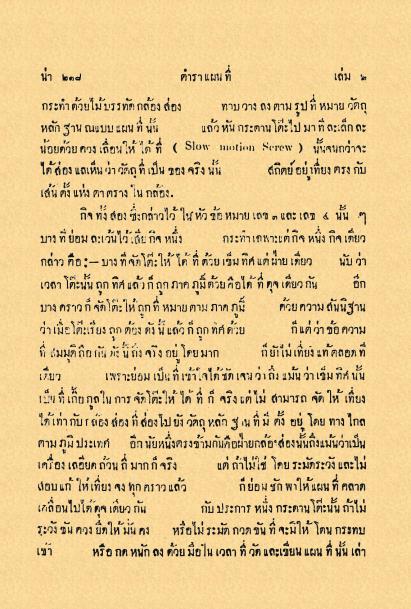 น่า ๒๓๘ ตำราแผนที่ เล่ม ๖
กระทำด้วยไม้บรรทัดกล้องส่อง ทาบวางลงตามรูปที่หมายวัตถุ
หลักฐานณแบบแผนที่นั้น แล้วหันกระดานโต๊ะไปมาทีละเล็กละ
น้อยด้วยควงเลื่อนให้ได้ที่ ( Slow motion Screw ) นั้นจนกว่าจะ
ได้ส่องแลเห็นว่าวัตถุที่เป็นของจริงนั้น สถิตย์อยู่เที่ยงตรงกับ
เส้นตั้งแห่งตาตรางในกล้อง.
กิจทั้งสองซึ่งกล่าวไว้ในหัวข้อหมายเลข ๓ และเลข ๔ นั้น ๆ
บางทีย่อมละเว้นไว้เสียกิจหนึ่ง กระทำเฉพาะแต่กิจหนึ่งกิจเดียว
กล่าวคือ:—บางทีจัดโต๊ะให้ได้ที่ด้วยเข็มทิศแต่ฝ่ายเดียว นับว่า
เวลาโต๊ะนั้นถูกทิศแล้วก็ถูกภาคภูมิ์ด้วยคือได้ที่ดุจเดียวกัน อีก
บางคราวก็จัดโต๊ะให้ถูกที่หมายตามภาคภูมิ์ ด้วยความสันนิฐาน
ว่าเมื่อโต๊ะเรียงถูกต้องดังนั้นแล้วก็ถูกทิศด้วย ก็แต่ว่าข้อความ
ที่สมมุติถือกันดังนี้ถึงจริงอยู่โดยมาก ก็ยังไม่เที่ยงแท้ตลอดที
เดียว เพราะย่อมเป็นที่เข้าใจได้ชัดเจนว่าถึงแม้นว่าเข็มทิศนั้น
เป็นที่เกื้อกูลในการจัดโต๊ะให้ได้ที่ก็จริงแต่ไม่สามารถจัดให้เที่ยง
ได้เท่ากับกล้องส่องที่ส่องไปยังวัตถุหลักฐานที่มีตั้งอยู่โดยทางไกล
ตามภูมิประเทศ อีกนัยหนึ่งตรงข้ามกันคือฝ่ายกล้องส่องนั้นถึงแม้นว่าเป็น
เครื่องเลอียดถ้วนถี่มากก็จริง แต่ถ้าไม่ใช้โดยระมัดระวังและไม่
สอบแก้ให้เที่ยงจงทุกคราวแล้ว ก็ย่อมชักพาให้แผนที่คลาด
เคลื่อนไปได้ดุจเดียวกัน กับประการหนึ่งกระดานโต๊ะนั้นถ้าไม่
ระวังขันควงยึดให้มั่นคง หรือไม่ระมัดกวดขันที่จะมิให้โดนกระทบ
เข้า หรือกดหนักลงด้วยมือในเวลาที่วัดและเขียนแผนที่นั้นเล่า